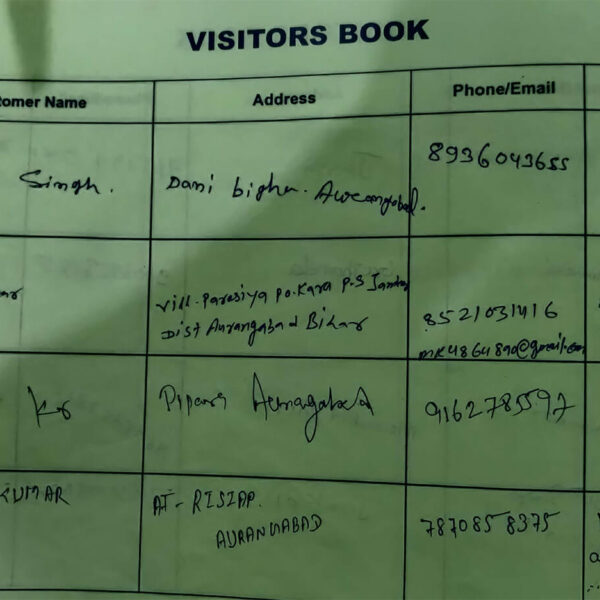 VISITORS BOOK
omer Name Address Phone/Email
Singh. Dani bigha. Aurangabad. 8936043655
ar vill. Parasiya po. Kara P.S
Dist Aurangabad Bihar 8521031416
mk4864890@gmail.com
Kr Aurangabad 9162785597
KUMAR AT- RISIAP.
AURANGABAD 7870858375